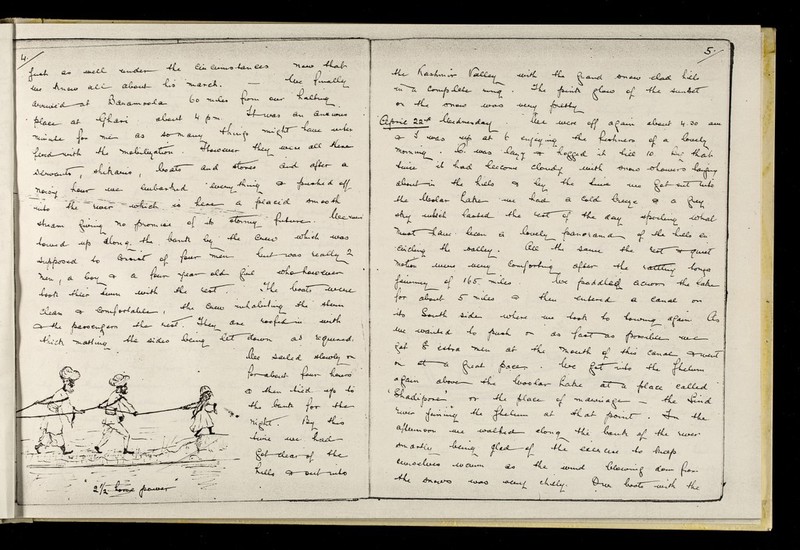 4.
just as well under the circumstances now that
we knew all about his march. — We finally
arrived at Baramoola 60 miles from our halting
place at Ghari about 4 p.m. It was an anxious
minute for me as so many things might have interfered
with the mobilization. However they were all there
servants, shikaris, boats and stores and after a
noisy hour we embarked everything & pushed off
into the river which is here a placid smooth
stream giving no promise of its stormy future. We were
towed up along the bank by the crew which was
supposed to consist of four men but was really 2
men, a boy & a four year old girl who however
took their turn with the rest. The boats were
clean & comfortable, the crew inhabiting the stern
& the passengers the rest. They are roofed in with
thick matting the sides being let down as required.
We sailed slowly on
for about four hours
& then tied up to
the bank for the
night. By this
time we had
got clear of the
hills & out into
"2½ horse power"
5.
the Kashmir Valley with the grand snow clad hills
in a complete ring. The pink glow of the sunset
on the snow was very pretty.
April 22nd Wednesday. We were off again about 4.30 am
& I was up at 6 enjoying the freshness of a lovely
morning. was lazy & hogged it till 10. By that
time it had become cloudy with snow showers hanging
about in the hills & by the time we got out into
the Woolar Lake we had a cold breeze & a grey
sky which lasted the rest of the day spoiling what
must have been a lovely panorama of the hills en-
circling the valley. All the same the rest & quiet
motion were very comforting after the rattling tonga
journey of 165 miles. We paddled across the lake
for about 5 miles & then entered a canal on
its South side where we took to towing again. As
we wanted to push on as fast as possible we
got extra men at the mouth of this canal & went
on at a great pace. We got into the Jhelum
again above the Woolar Lake at a place called
Shadipore or the place of marriage — the Sind
river joining the Jhelum at that point. In the
afternoon we walked along the bank of the river
being glad of the exercise to keep
ourselves warm as the wind blowing down from
the snows was very chilly. Our boats with the